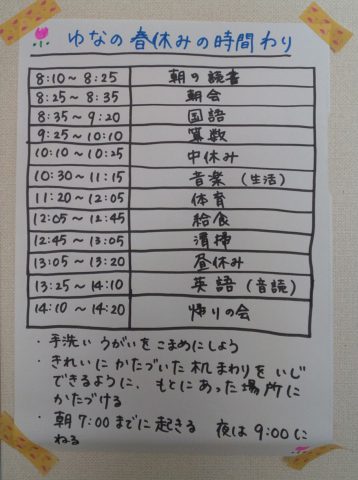 ゆなの春休みの時間わり
8:10～8:25 朝の読書
8:25～8:35 朝会
8:35～9:20 国語
9:25～10:10 算数
10:10～10:25 中休み
10:30～11:15 音楽（生活）
11:20～12:05 体育
12:05～12:45 給食
12:45～13:05 清掃
13:05～13:20 昼休み
13:25～14:10 英語（音読）
14:10～14:20 帰りの会
・手洗いうがいをこまめにしよう
・きれいにかたづいた机まわりをいじ
できるように、もとにあった場所に
かたづける
・朝7:00までに起きる 夜は9:00に
ねる